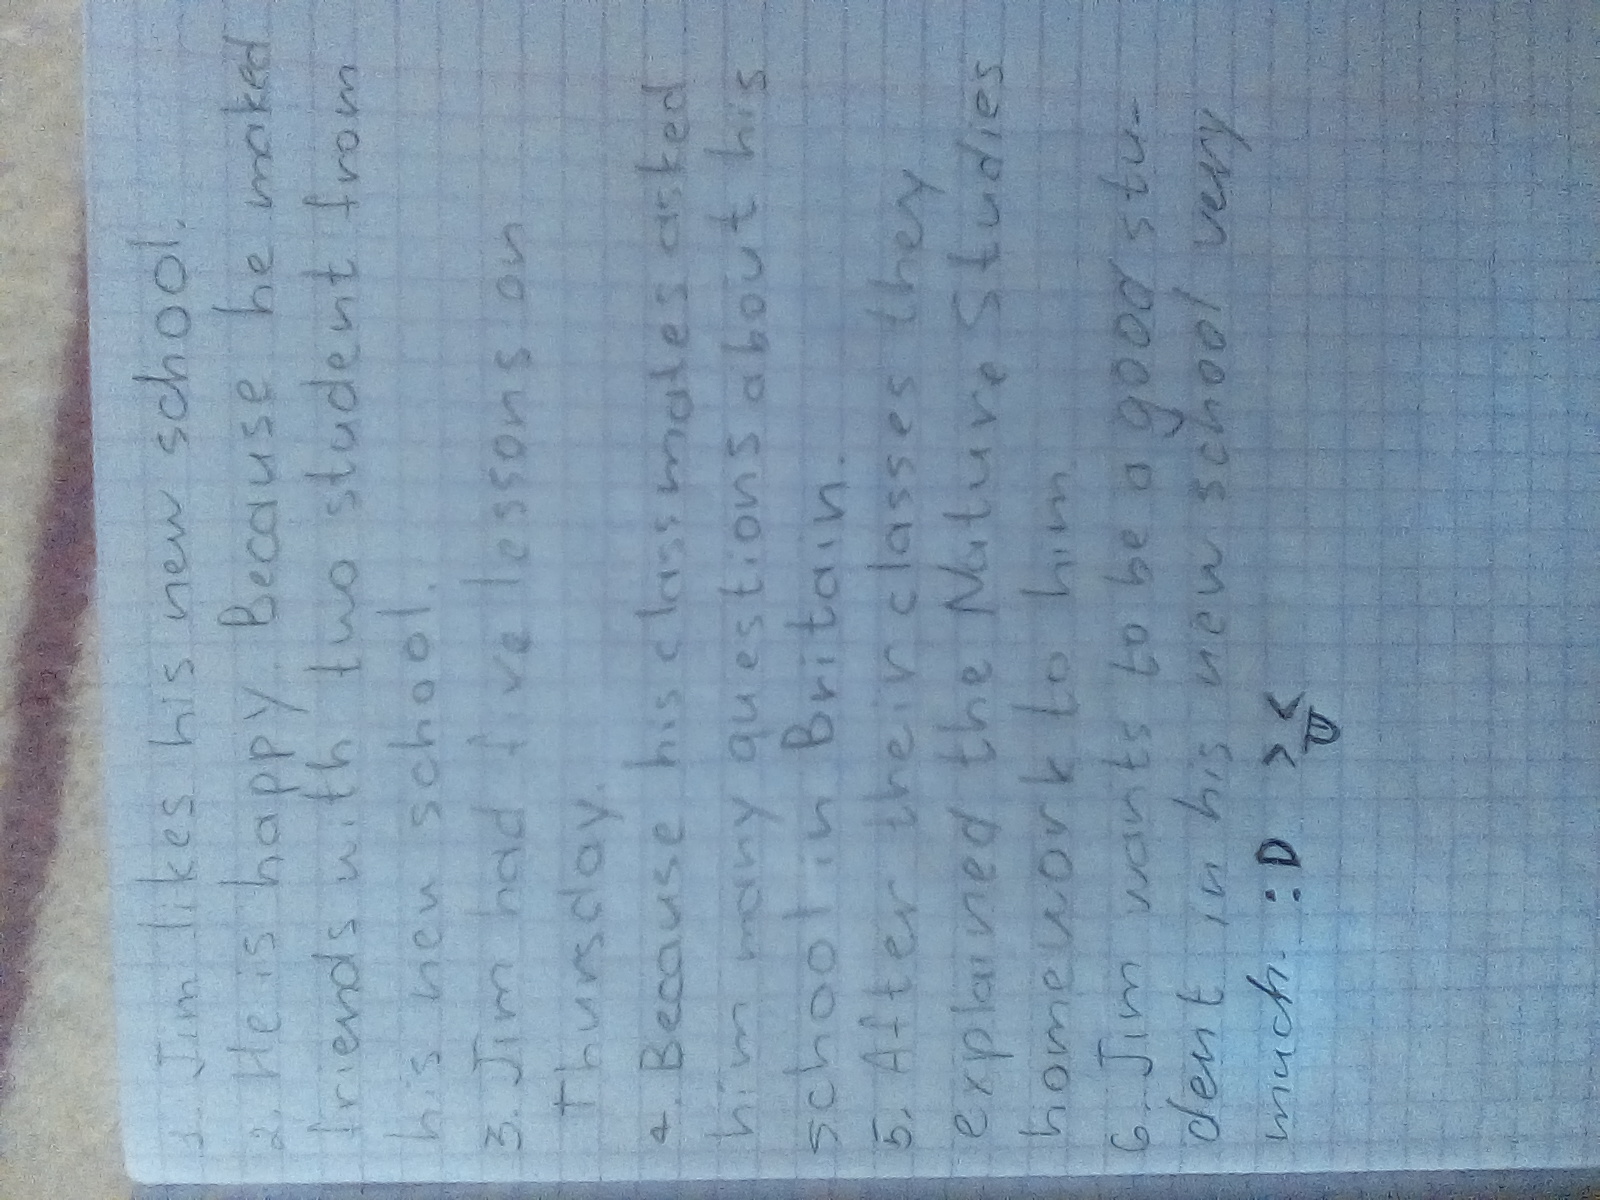 1. Jim likes his new school.
2. He is happy. Because he maked
friends with two student from
his new school.
3. Jim had five lessons on
thursday.
4. Because his classmates asked
him many questions about his
school in Britain.
5. After their classes they
explained the Nature Studies
homework to him
6. Jim wants to be a good stu-
dent in his new school very
much. :D >